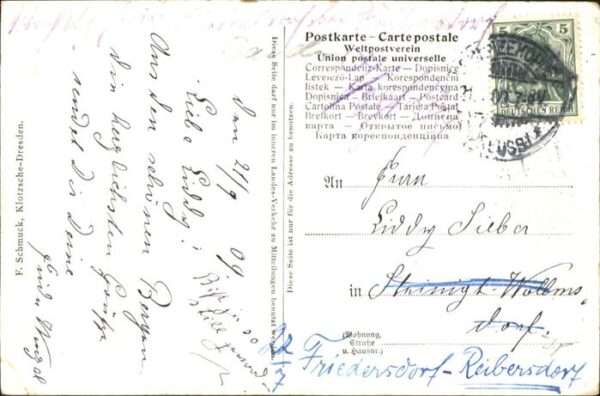 Postkarte – Carte postale
Weltpostverein
Union postale universelle
Correspondenz-Karte — Dopisnice
Levelező-Lap — Korespondenční
lístek — Karta korespondencyjna
Dopisnica — Briefkaart — Postcard
Cartolina Postale — Tarjeta Postal
Brefkort — Brevkort — Дописна
карта — Открытое письмо
Карта кореспонденційна
5 5
DEUTSCHES REICH
An Frau
Liddy Sieber
in Steinigt-Wollms
dorf.
(Wohnung,
Straße
u. Hausnr.)
Friedersdorf-Reibersdorf
Diese Seite darf nur im inneren Landes-Verkehr zu Mitteilungen benutzt werden.
Diese Seite ist nur für die Adresse zu benutzen.
den 21/9 09.
Liebe Liddy!
Aus den schönen Bergen
die herzlichsten Grüße
sendet Dir Deine
F. Schmuck, Klotzsche-Dresden.